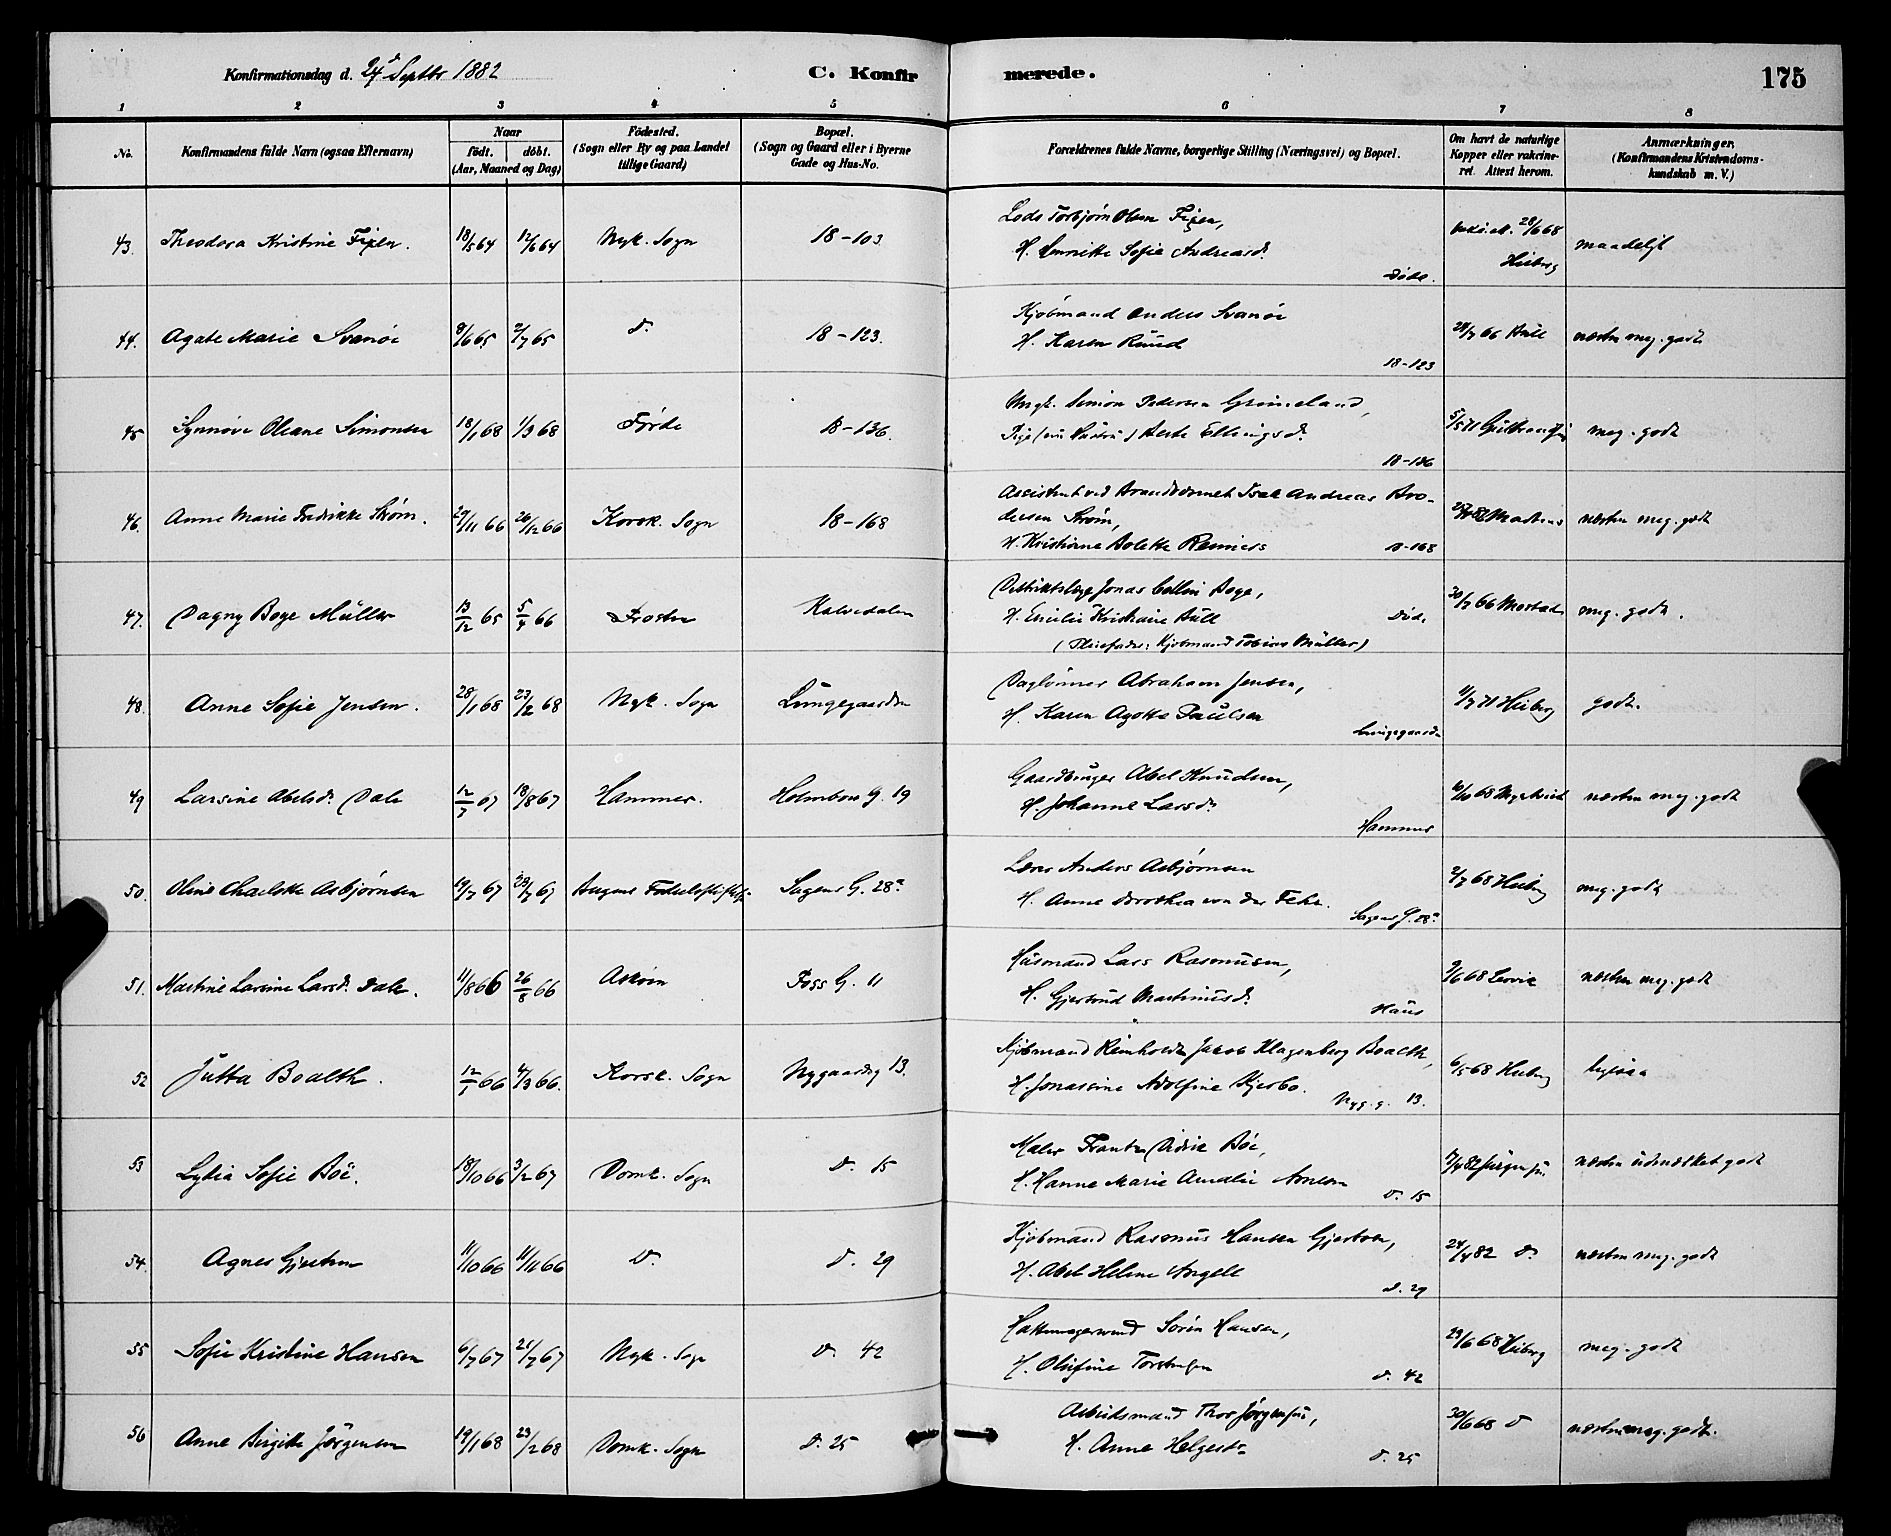 Konfirmationsdag d. 24 Septbr 1882
C. Konfirmerede.
175
1 2 3 4 5 6 7 8
No.
Konfirmandens fulde Navn (ogsaa Efternavn)
Naar
födt. döbt.
(Aar, Maaned og Dag)
Födested.
(Sogn eller By og paa Landet
tillige Gaard)
Bopæl.
(Sogn og Gaard eller i Byerne
Gade og Hus-No.
Forældrenes fulde Navne, borgerlige Stilling (Næringsvei) og Bopæl.
Om havt de naturlige
Kopper eller vakcine-
ret. Attest herom.
Anmærkninger.
(Konfirmandens Kristendoms-
kundskab m. V.)
43. Theodora Kristine Fixen. 18/5 64 12/6 64 Nyk. Sogn 18-103
Lods Torbjørn Olsen Fixen,
H. Henriette Sofie Andreasd.
Døde.
28/6 68
Heiberg
maadeligt
44. Agate Marie Svanöe 8/6 65 2/7 65 D. 18-123.
Kjöbmand Anders Svanöe
H. Karen Ruud
18-123
28/7 66 næsten meg. godt
45 Synnöve Oleane Simonsen 18/1 68 1/3 68 Förde 18-136.
Ungk. Simon Pedersen Grimeland,
Ellingsd.
18-136
5/5 71 meg. godt
46. Anne Marie Fredrikke Ström. 29/11 66 26/12 66 Korsk. Sogn 18-168
Assistent ved Brandvæsenet Isak Andreas Bro-
dersen Ström,
H. Kristiane Bolette Reimers 18-168
næsten meg. godt
47. Dagny Boye Müller 13/12 65 5/4 66 Frosten Kalvedalen
Distriktslæge Jonas Collin Boye,
H. Emilie Kristiane Düll Döde
(Pleiefader: Kjöbmand Tobias Müller)
30/7 66 meg. godt.
48. Anne Sofie Jensen. 28/1 68 23/2 68 Nyk. Sogn Lungegaarden
Daglönner Abraham Jensen,
H. Karen Agathe Paulsen
Lungegaarden
11/7 71 Heiberg godt.
49 Larsine Abelsd. Dale 12/7 67 18/8 67 Hammer. Holmboe G. 19
Gaardbruger Abel Knudsen,
H. Johanne Larsd.
Hammer
næsten meg. godt
50. Oline Charlotte Asbjörnsen 19/7 67 28/7 67 Sagens G. 28a
Anders Asbjörnsen
H. Anne Dorothea von der Fehr.
Sagens G. 28a
2/7 68 Heiberg meg. godt
51. Martine Larsine Larsd. Dale. 11/8 66 26/8 66 Asköen Foss G. 11
Husmand Lars Rasmussen,
H. Gjertrud Martinusd.
Haus
9/6 68 næsten meg. godt
52 Jutta Boalth. 12/1 66 4/3 66. Korsk. Sogn Nygaardsg 13.
Kjöbmand Reinholdt Jakob Klagenberg Boalth,
H. Jonassine Adolfine Kjerbo.
Nyg. g. 13.
6/5 68 Heiberg ligesaa
53 Lydia Sofie Böe. 18/10 66 3/2 67 Domk. Sogn D. 15
Maler Frantz Didrik Böe,
H. Hanne Marie Amalie Arnesen
D. 15
næsten udmærket godt
54. Agnes Gjertsen 11/10 66 11/11 66 D. D. 29
Kjöbmand Rasmus Hansen Gjertsen,
H. Abel Helene Angell
D. 29
24/4 82 D. næsten meg. godt
55 Sofie Kristine Hansen 6/7 67 21/7 67 Nyk. Sogn D. 42
Hattemagersvend Sören Hansen,
H. Olufine Torstensen
D. 42
29/6 68 Heiberg meg. godt
56 Anne Birgitte Jörgensen 19/1 68 23/2 68 Domk. Sogn D. 25
Arbeidsmand Thor Jörgensen,
H. Anne Helgesd.
D. 25
30/6 68 D næsten meg. godt.